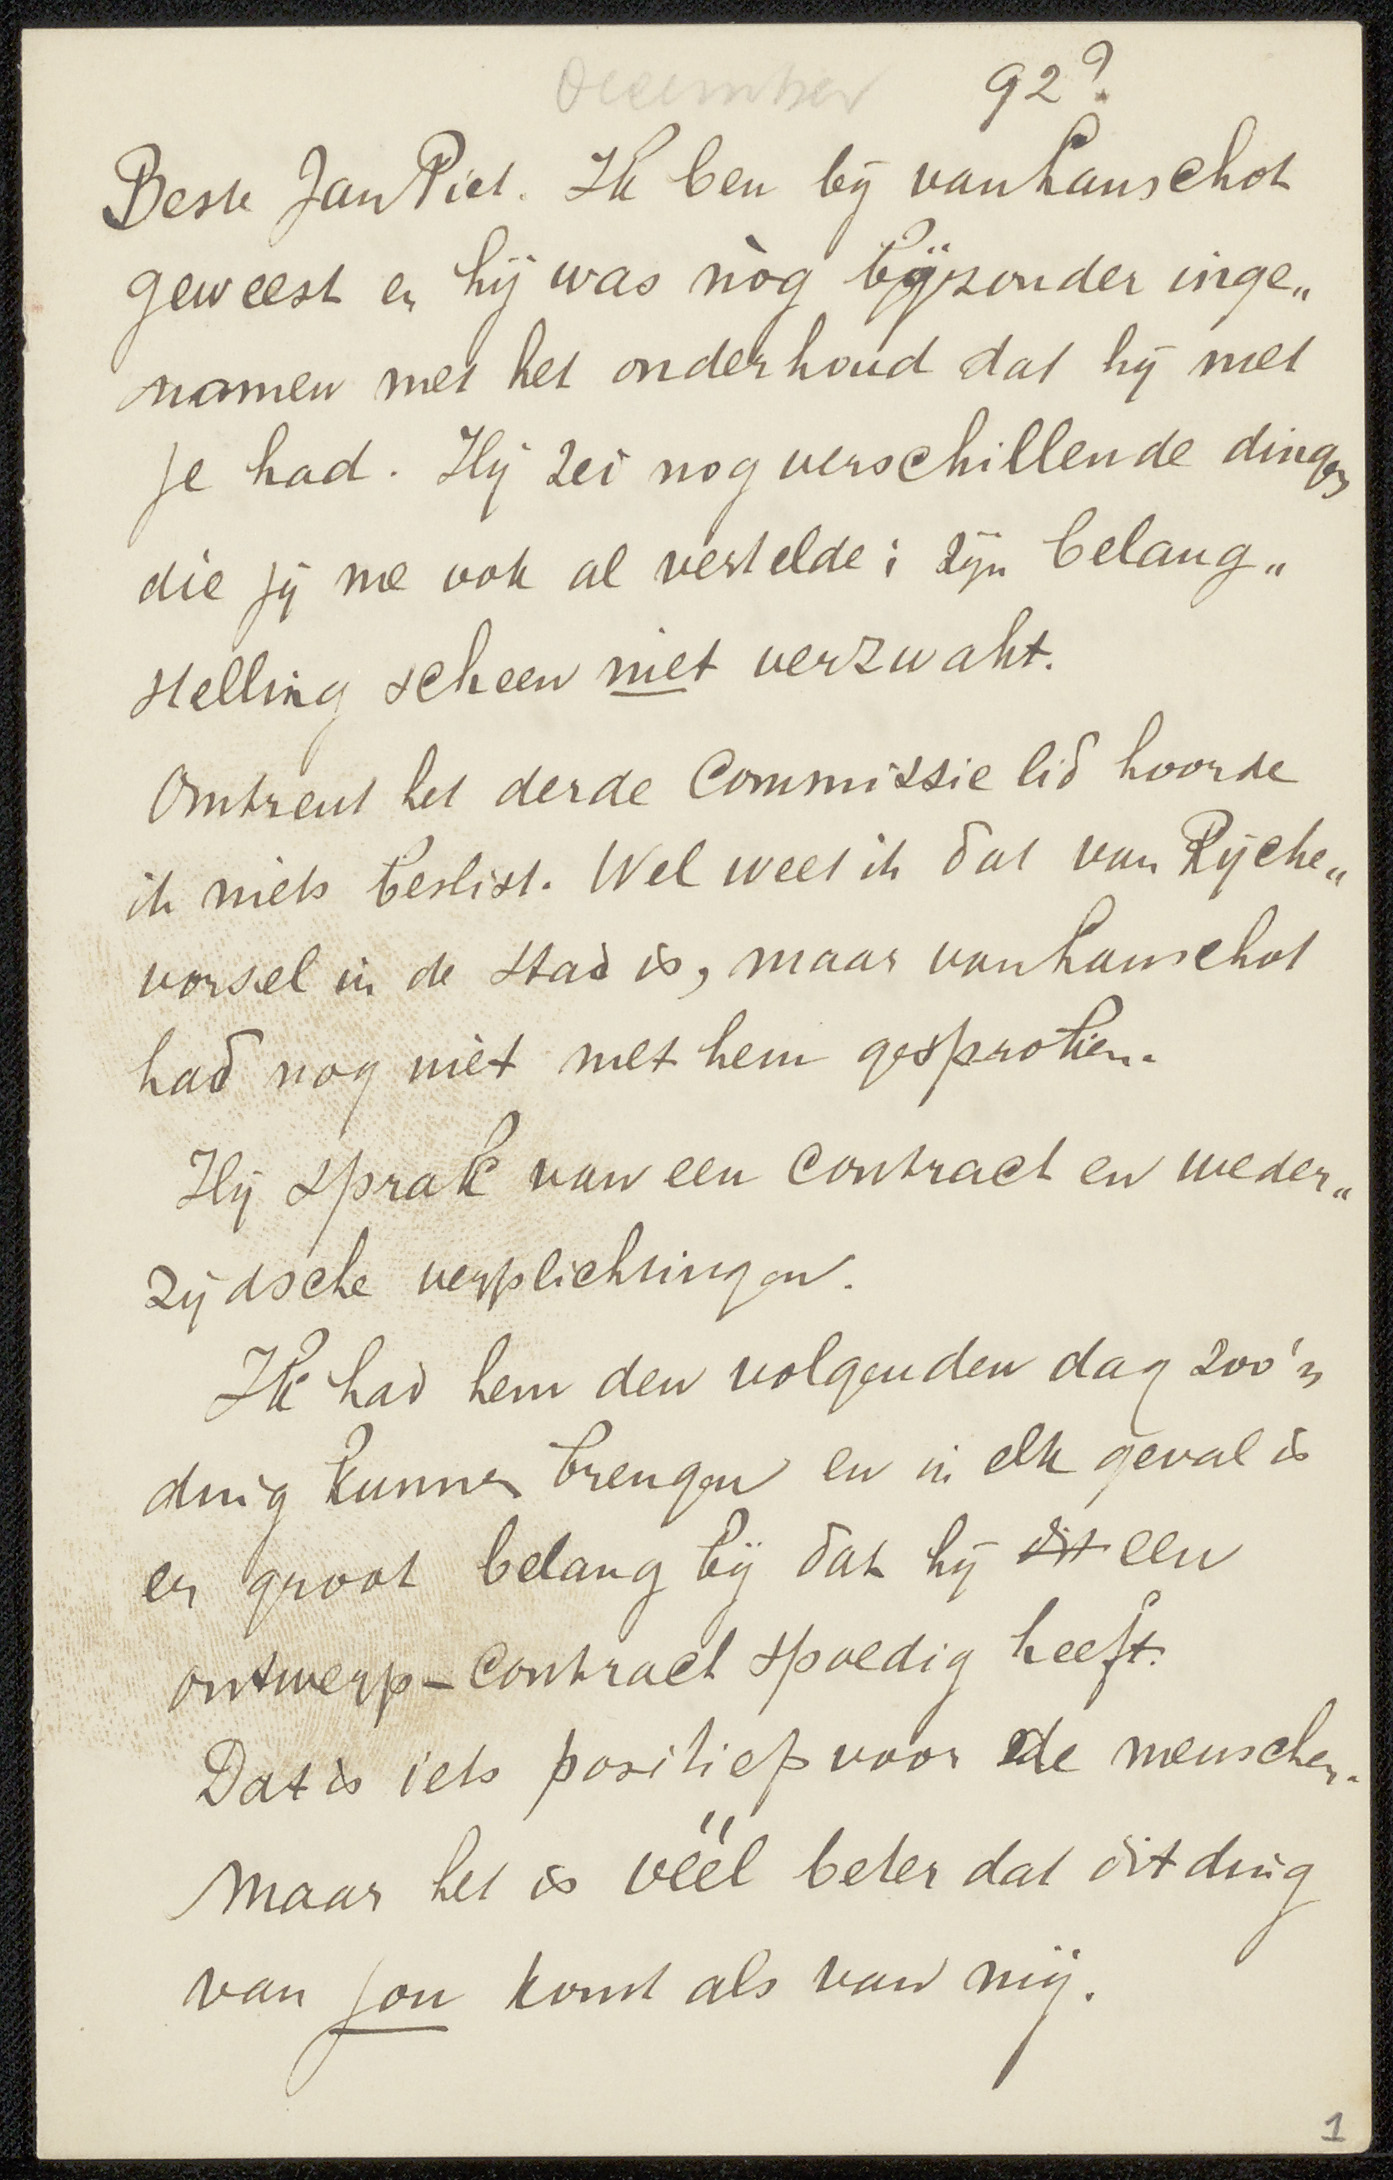 December 92?
Beste Jan Piet. Ik ben bij van Lanschot
geweest en hij was nòg bijzonder inge„
nomen met het onderhoud dat hij met
je had. Hij zei nog verschillende dingen
die jij me ook al vertelde; zijn belang„
stelling scheen niet verzwakt.
Omtrent het derde Commissie lid hoorde
ik niets beslist. Wel weet ik dat van Rijcke„
vorsel in de stad is, maar van Lanschot
had nog niet met hem gesproken.
Hij sprak van een contract en weder„
zijdsche verplichtingen.
Ik had hem den volgenden dag zoo'n
ding kunnen brengen en in elk geval is
er groot belang bij dat hij dit een
ontwerp-contract spoedig heeft.
Dat is iets positiefs voor de menschen.
Maar het is véél beter dat dit ding
van jou komt als van mij.
1